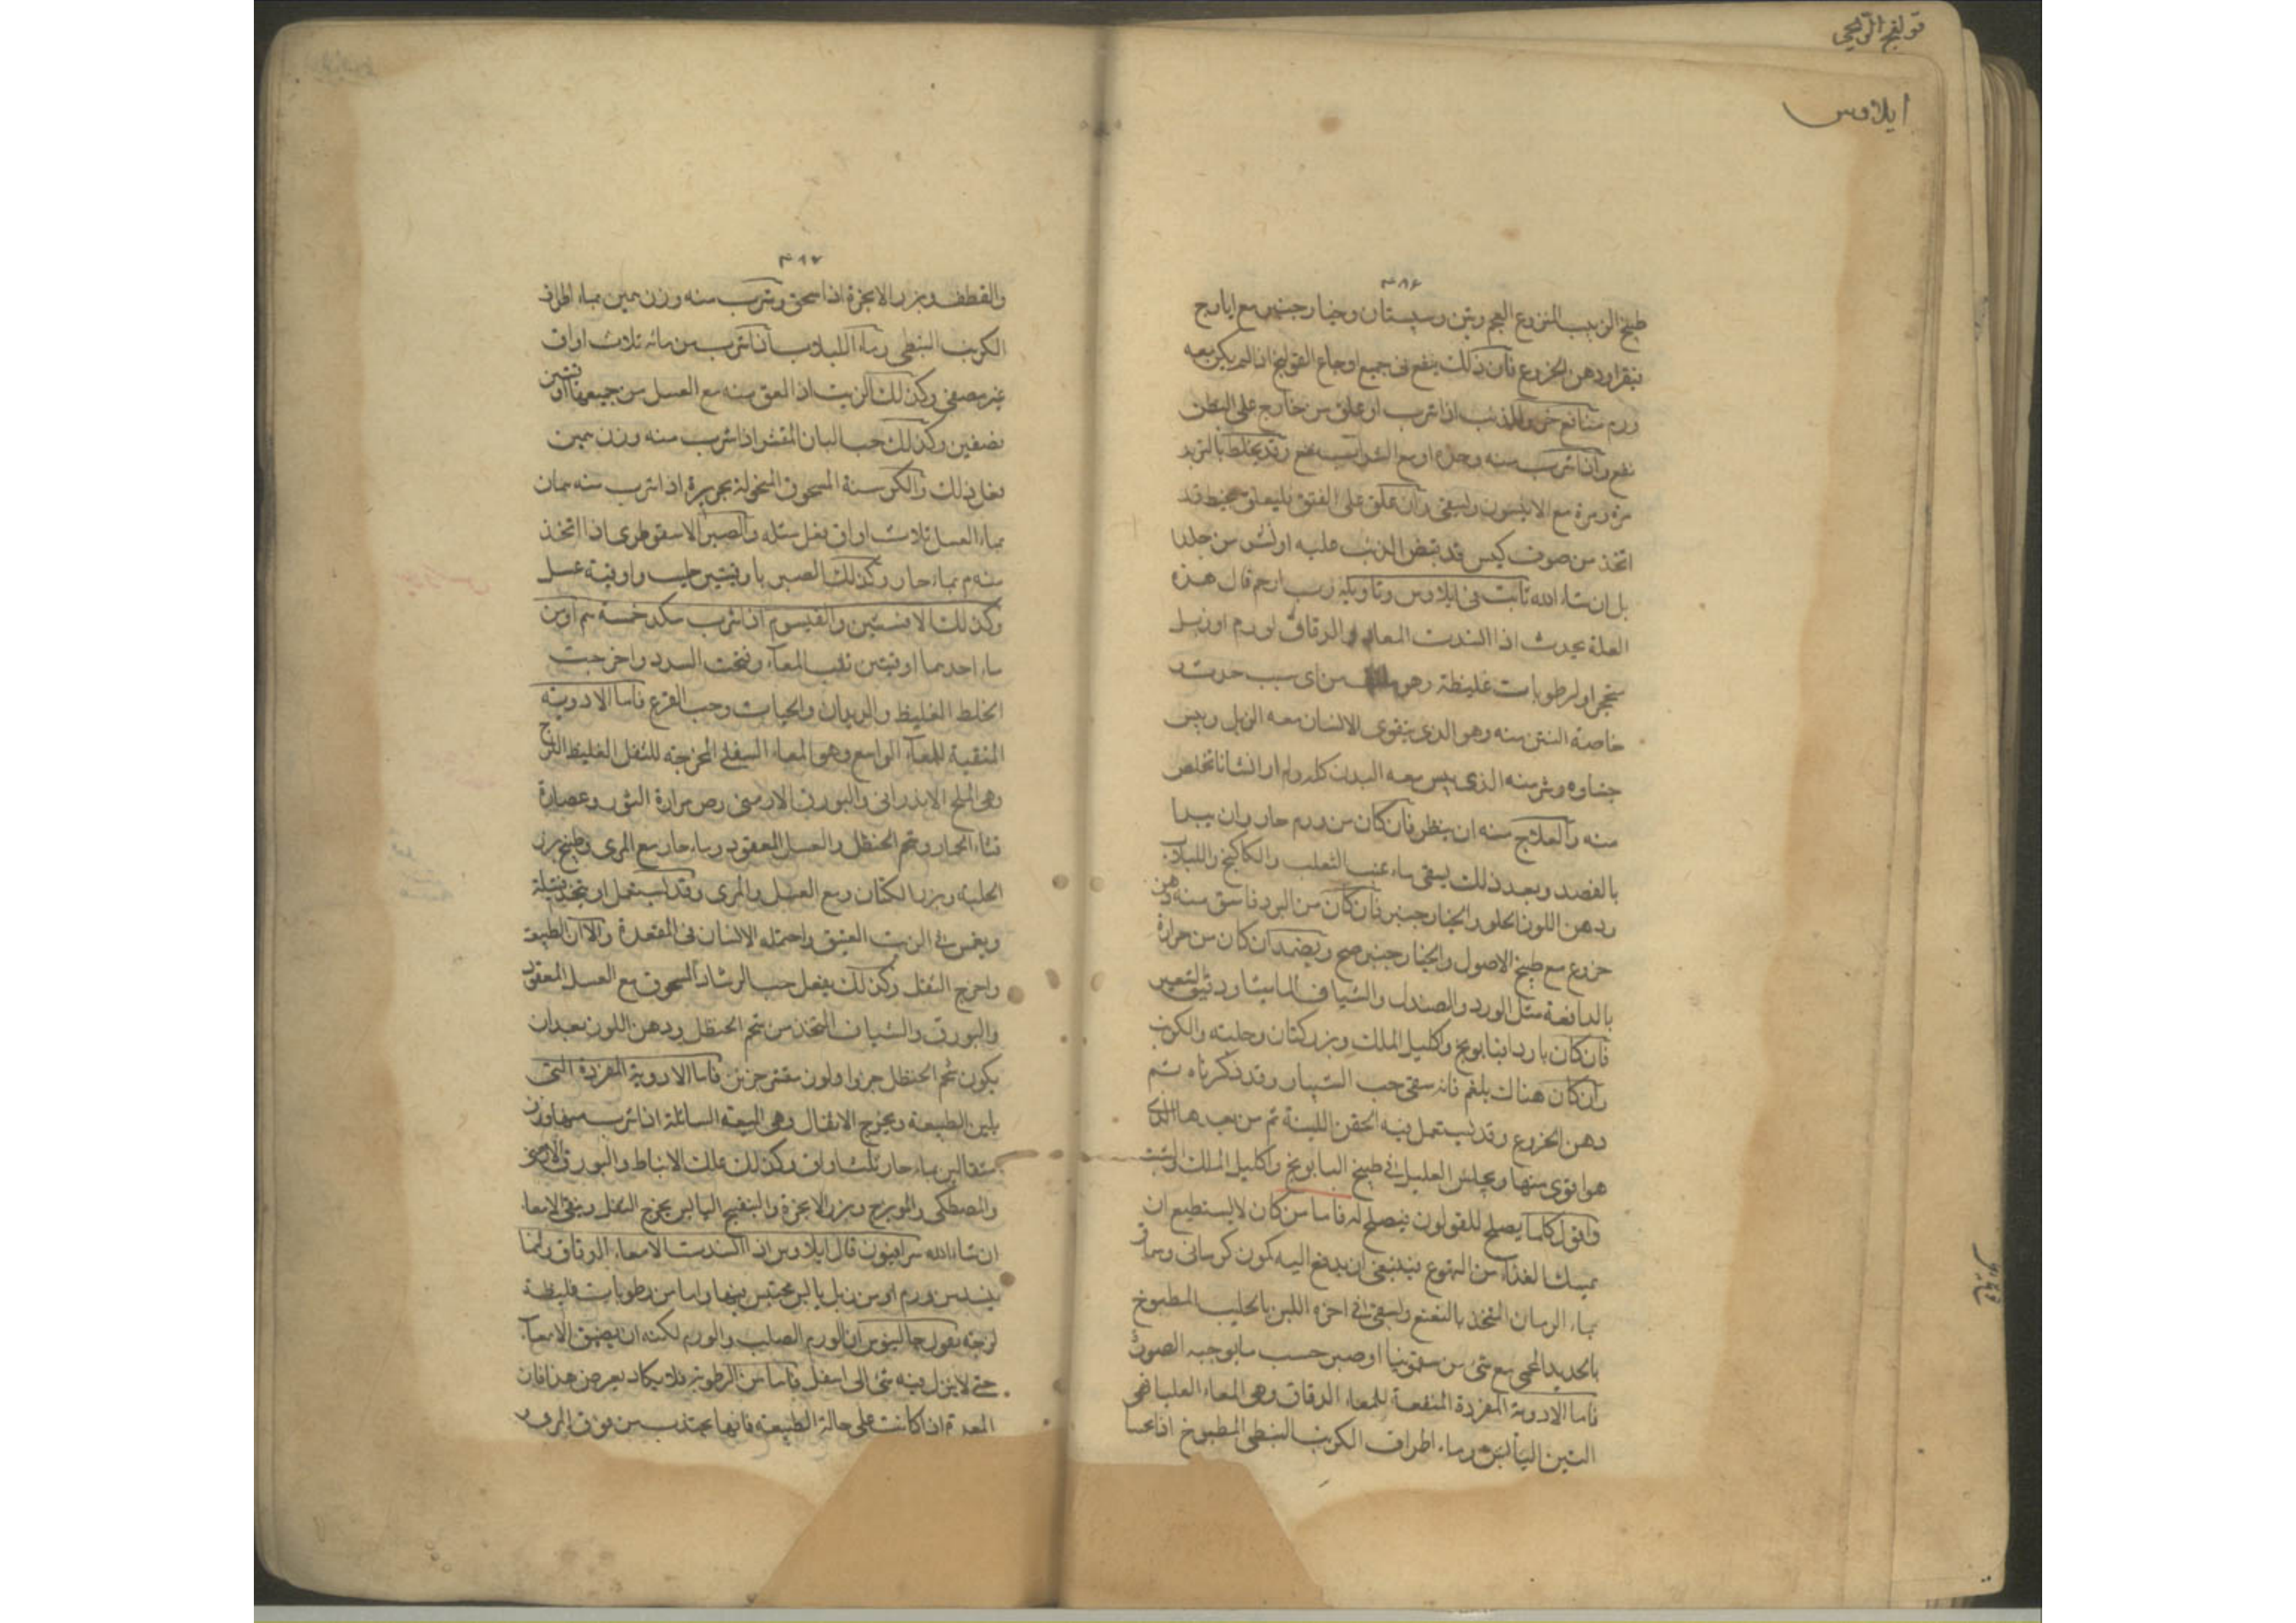 قولنج الريحي
ايلاوس
٣٨٦
طبيخ الزبيب المنزوع العجم وتين وسبستان وخيارجنبر مع ايارج
فيقرا ودهن الخروع فان ذلك ينفع في جميع اوجاع القولنج اذا لم يكن معه
ورم خرو الذئب اذا شرب او علق من خارج على البطن
نفع وان شرب منه وحده او مع الشراب نفع وقد يخلط بالتربد
مرة ومرة مع الانيسون ويسقى وان علق على الفتق فليعلق بخيط قد
اتخذ من صوف كبش قد قبض الذئب عليه او من جلد
ان شاء الله ثابت في ايلاوس وتاويله رب ارحم قال هذه
العلة يحدث اذا انسدت المعاء الدقاق لورم او زبل
متحجر او لرطوبات غليظة وهو من اى سبب حدث
خاصة النتن منه وهو الذى يتقوى الانسان معه الزبل
وشر منه الذى معه البدن كله ولم ار انسانا تخلص
منه والعلاج منه ان ينظر فان كان من ورم حار وان يبدا
بالفصد وبعد ذلك يسقى ماء عنب الثعلب والكاكنج واللبلاب
ودهن اللوز الحلو والخيارجنبر فان كان من البرد فاسق منه دهن
خروع مع طبيخ الاصول والخيارجنبر ويضمد ان كان من حرارة
مثل الورد والصندل والشياف الماميثا ودقيق الشعير
فان كان باردا بابونج واكليل الملك وبزركتان وحلبه والكرنب
وان كان هناك بلغم فانه سقى حب الشبيار وقد ذكرناه ثم
دهن الخروع وقد يستعمل فيه الحقن اللينة ثم من بعدها
هو اقوى منها ويجلس العليل في طبيخ البابونج واكليل الملك والشبت
واقول كلما يصلح للقولون فيصلح له فاما من كان لا يستطيع ان
يمسك الغذاء من التهوع فينبغى ان يدفع اليه كمون كرمانى وسماق
بماء الرمان المتخذ بالنعنع ويسقى في اخره اللبن الحليب المطبوخ
بالحديد المحمى مع شئ من سقمونيا او صبر حسب ما يوجبه الصورة
فاما الادوية المفردة المنقية للمعاء الدقاق وهى المعاء العليا فهى
التين اليابس وماء اطراف الكرنب النبطى المطبوخ اذا تحسا
٣٨٧
والقطف وبزر الانجرة اذا سحق وشرب منه وزن درهمين بماء اطراف
الكرنب النبطى وماء اللبلاب اذا شرب من مائه ثلاث اواق
غير مصفى وكذلك الزيت اذا لعق منه مع العسل من جميعهما اوقيتين
نصفين وكذلك حب البان المقشر اذا شرب منه وزن درهمين
فعل ذلك والكرسنة المسحوق المنخولة بحريرة اذا شرب منه درهمان
بماء العسل ثلاث اواق فعل مثله والصبر الاسقوطرى اذا اتخذ
منه بماء حار وكذلك الصبر باوقيتين حليب واوقية عسل
وكذلك الافسنتين والقيسوم اذا شرب خمسة او من
ماء احدهما اوقيتين نقيت المعاء وفتحت السدد واخرجت
الخلط الغليظ والديدان والحيات وحب القرع فاما الادوية
المنقية للمعاء الواسع وهو المعاء السفلى المخرجة للثفل الغليظ اللزج
وهى الملح الاندرانى والبورق الارمنى ومرارة الثور وعصارة
قثاء الحمار وشحم الحنظل والعسل المعقود وماء حار مع المرى وطبيخ بزر
الحلبة وبزر الكتان ومع العسل والمرى وقد يستعمل او يتخذ فتيلة
ويغمس في الزيت العتيق واحتمله الانسان في المقعدة والان الطبيعة
واخرج الثفل وكذلك يفعل حب الرشاد المسحوق مع العسل المعقود
والبورق والشياف المتخذ من شحم الحنظل ودهن اللوز بعد ان
يكون شحم الحنظل جزوا ولوز مقشر جزين فاما الادوية المفردة التى
يلين الطبيعة ويخرج الاثقال وهى الميعة السائلة اذا شرب منها وزن
مثقالين بماء حار ثلث اواق وكذلك علك الانباط والبورق الارمنى
والمصطكى وبزر الانجرة والبنفسج اليابس يخرج الثفل وينقى الامعاء
ان شاء الله سرافيون قال ايلاوس اذا انسدت الامعاء الدقاق وانما
ينسد من ورم او من زبل يابس محتبس فيها واما من رطوبات غليظة
لزجة يقول جالينوس ان الورم الصلب والورم لكنه ان يضيق الامعاء
حتى لا ينزل فيه شئ الى اسفل فاما من الرطوبة فلا يكاد يعرض هذا فان
المعدة اذا كانت على حالة الطبيعة فانها يجتذب من فوق